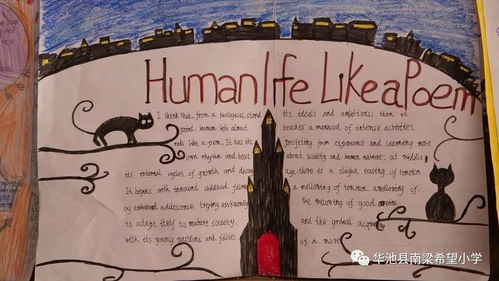 Human life Like a Poem
I think that, from a biological stand
point, human life almost
reads like a poem. It has its
own rhythm and beat
its internal cycles of growth and decay
It begins with innocent childhood, followed
by awkward adolescence trying awkwardly
to adapt itself to mature society.
with its young passions and follies
its ideals and ambitions; then it
reaches a manhood of intense activities.
profiting from experience and learning more
about society and human nature. at middle
age, there is a slight easing of tension
a mellowing of tension, amellowing of
the mellowing of good
and the gradual
of a more
华池县南梁希望小学